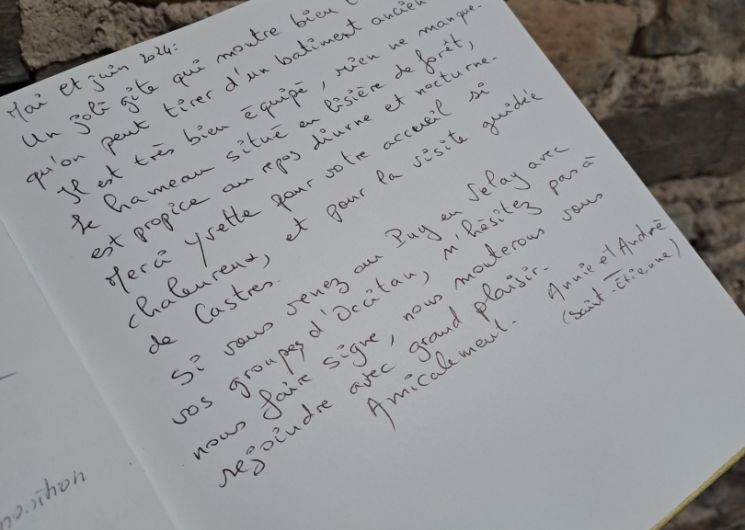 Mai et juin 2024:
Un joli gîte qui montre bien
qu'on peut tirer d'un batiment ancien
Il est très bien équipé, rien ne manque.
Le hameau situé en lisière de forêt,
est propice au repos diurne et nocturne.
Merci Yvette pour votre accueil si
chaleureux, et pour la visite guidée
de Castres.
Si vous venez au Puy en Velay avec
vos groupes d'Occitan, n'hésitez pas à
nous faire signe, nous monterons vous
rejoindre avec grand plaisir.
Amicalement. Annie et André
(Saint-Étienne)